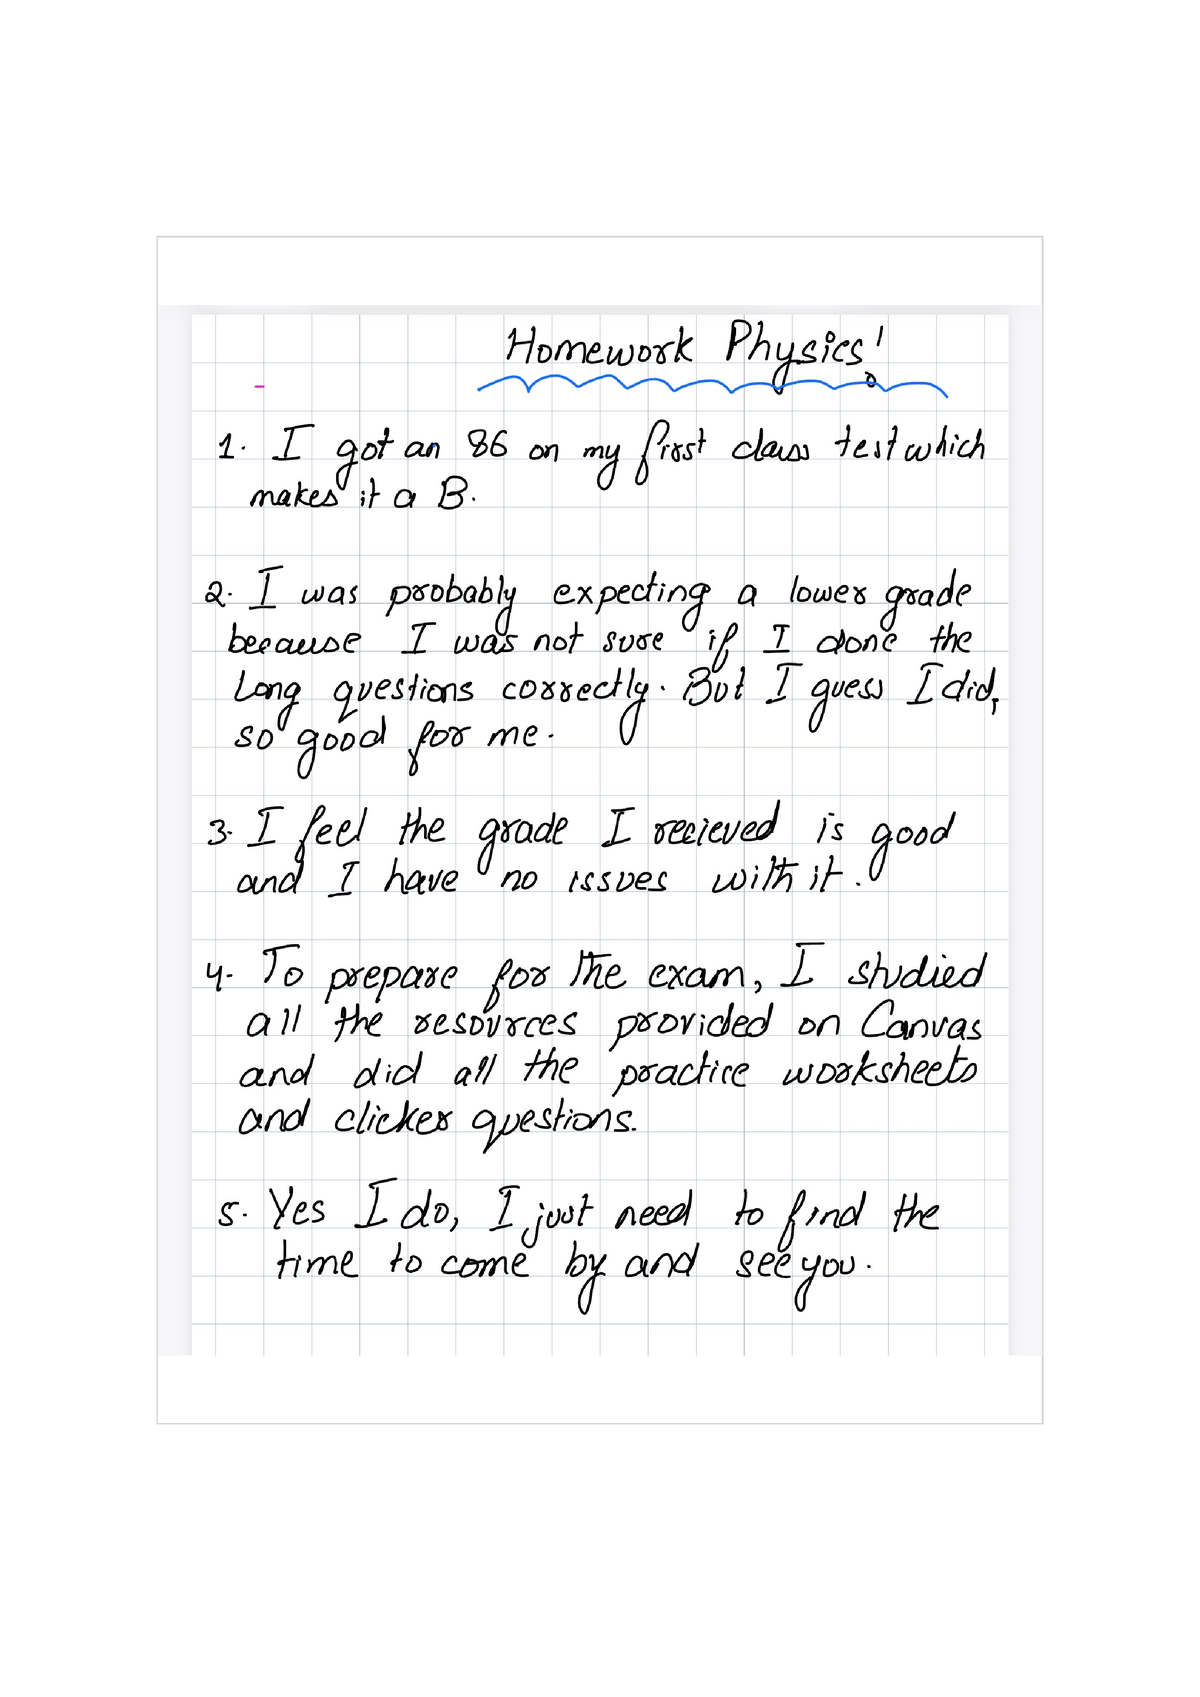 Homework Physics!
1. I got an 86 on my first class test which
makes it a B.
2. I was probably expecting a lower grade
because I was not sure if I done the
Long questions correctly. But I guess I did,
so good for me.
3. I feel the grade I recieved is good
and I have no issues with it.
4. To prepare for the exam, I studied
all the resources provided on Canvas
and did all the practice worksheets
and clicker questions.
5. Yes I do, I just need to find the
time to come by and see you.